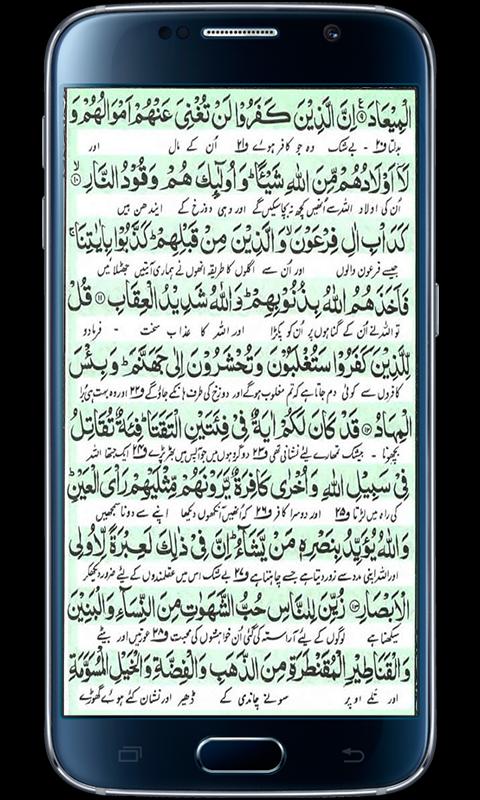 الْمِیْعَادَ ۠ اِنَّ الَّذِیْنَ كَفَرُوْا لَنْ تُغْنِیَ عَنْهُمْ اَمْوَالُهُمْ وَ
بدلتا ف۲۰ - بے شک وہ جو کافر ہوئے ف۲۱ اُن کے مال اور
لَاۤ اَوْلَادُهُمْ مِّنَ اللّٰهِ شَیْـًٔا ؕ وَ اُولٰٓىِٕكَ هُمْ وَقُوْدُ النَّارِ ۙ۱۰
اُن کی اولاد اللہ سے اُنھیں کچھ نہ بچا سکیں گے اور وہی دوزخ کے ایندھن ہیں
كَدَاْبِ اٰلِ فِرْعَوْنَ ۙ وَ الَّذِیْنَ مِنْ قَبْلِهِمْ ؕ كَذَّبُوْا بِاٰیٰتِنَا ۚ
جیسے فرعون والوں اور اُن سے اگلوں کا طریقہ انھوں نے ہماری آیتیں جھٹلائیں
فَاَخَذَهُمُ اللّٰهُ بِذُنُوْبِهِمْ ؕ وَ اللّٰهُ شَدِیْدُ الْعِقَابِ ۱۱ قُلْ
تو اللہ نے اُن کے گناہوں پر اُن کو پکڑا اور اللہ کا عذاب سخت - فرمادو
لِّلَّذِیْنَ كَفَرُوْا سَتُغْلَبُوْنَ وَ تُحْشَرُوْنَ اِلٰى جَهَنَّمَ ؕ وَ بِئْسَ
کافروں سے کوئی دم جاتا ہے کہ تم مغلوب ہوگے اور دوزخ کی طرف ہانکے جاؤ گے ف۲۲ اور وہ بہت ہی بُرا
الْمِهَادُ ۱۲ قَدْ كَانَ لَكُمْ اٰیَةٌ فِیْ فِئَتَیْنِ الْتَقَتَا ؕ فِئَةٌ تُقَاتِلُ
بچھونا - بیشک تمھارے لئے نشانی تھی ف۲۳ دو گروہوں میں جو آپس میں بھڑ پڑے ف۲۴ ایک جتھا اللہ
فِیْ سَبِیْلِ اللّٰهِ وَ اُخْرٰى كَافِرَةٌ یَّرَوْنَهُمْ مِّثْلَیْهِمْ رَاْیَ الْعَیْنِ ؕ
کی راہ میں لڑتا ف۲۵ اور دوسرا کافر ف۲۶ کہ اُنھیں آنکھوں دیکھا اپنے سے دونا سمجھیں
وَ اللّٰهُ یُؤَیِّدُ بِنَصْرِهٖ مَنْ یَّشَآءُ ؕ اِنَّ فِیْ ذٰلِكَ لَعِبْرَةً لِّاُولِی
اور اللہ اپنی مدد سے زور دیتا ہے جسے چاہتا ہے ف۲۷ بے شک اس میں عقلمندوں کے لیئے ضرور دیکھ کر
الْاَبْصَارِ ۱۳ زُیِّنَ لِلنَّاسِ حُبُّ الشَّهَوٰتِ مِنَ النِّسَآءِ وَ الْبَنِیْنَ
سیکھنا ہے لوگوں کے لیئے آراستہ کی گئی اُن خواہشوں کی محبت ف۲۸ عورتیں اور بیٹے
وَ الْقَنَاطِیْرِ الْمُقَنْطَرَةِ مِنَ الذَّهَبِ وَ الْفِضَّةِ وَ الْخَیْلِ الْمُسَوَّمَةِ
اور تلے اوپر سونے چاندی کے ڈھیر اور نشان کئے ہوئے گھوڑے